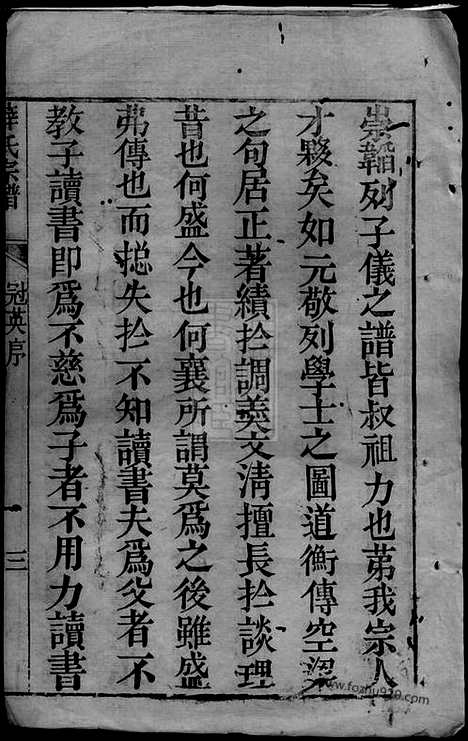 崇韜列子儀之譜皆叔祖力也苐我宗人
才夥矣如元敬列學士之圖道衡傳空梁
之句居正著績扵調羮文清擅長扵談理
昔也何盛今也何衰所謂莫為之後雖盛
弗傳也而揔失扵不知讀書夫為父者不
教子讀書即為不慈為子者不用力讀書
薛氏宗譜
冠英序
三
www.fozhu920.com